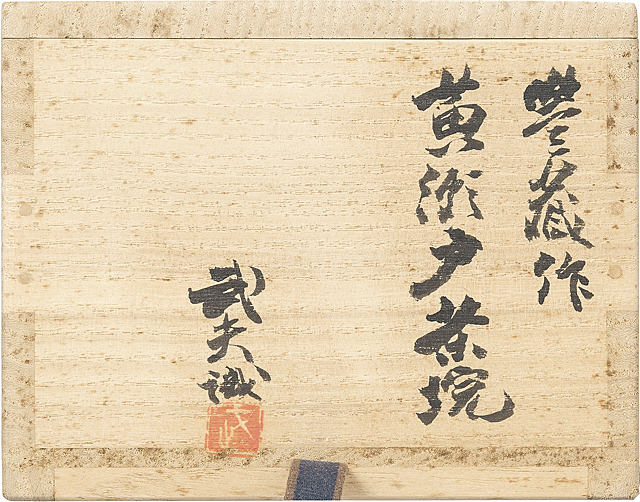 豊藏作
黄瀬戸茶垸
武夫識